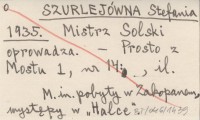 SZURLEJÓWNA Stefania
1935. Mistrz Solski
oprowadza. - Prosto z
Mostu 1, nr 14: , il.
M. in. pobyty w Zakopanem,
występy w „Halce"